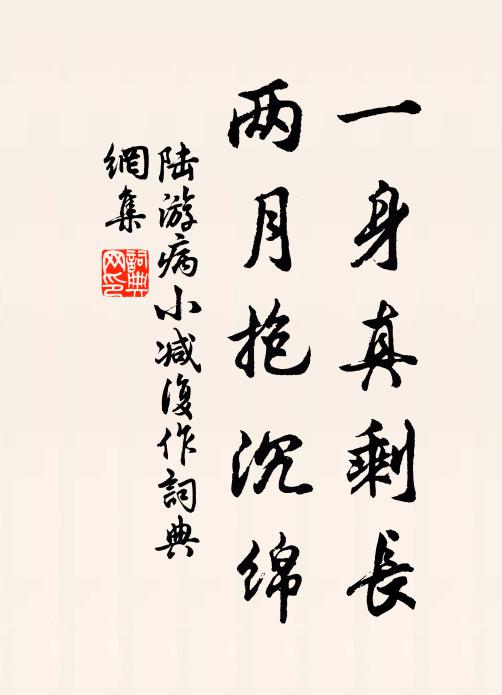 一身真剩長
两月抱沉绵
陆游病小减復作詞典
網集
詞典网印